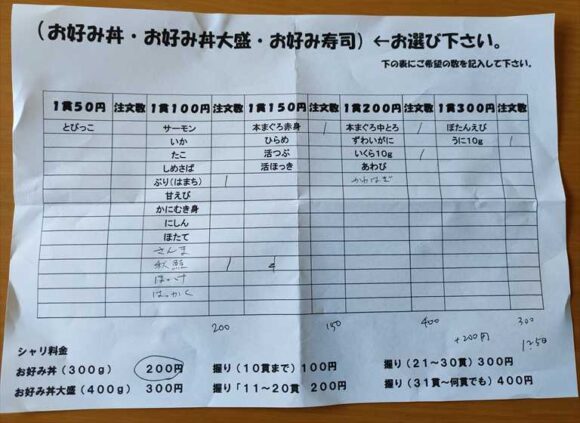 (お好み丼・お好み丼大盛・お好み寿司)←お選び下さい。
下の表にご希望の数を記入して下さい。
1貫50円 注文数 1貫100円 注文数 1貫150円 注文数 1貫200円 注文数 1貫300円 注文数
とびっこ サーモン 本まぐろ赤身 1 本まぐろ中とろ 1 ぼたんえび
いか ひらめ ずわいがに うに10g 1
たこ 活つぶ いくら10g 1
しめさば 活ほっき あわび
ぶり(はまち) 1 かわはぎ
甘えび
かにむき身
にしん
ほたて
さんま
秋鮭 1 4
ほっけ
はっかく
200 150 400 300
+200円 1250
シャリ料金
お好み丼(300g) 200円 握り(10貫まで)100円 握り(21~30貫)300円
お好み丼大盛(400g) 300円 握り「11~20貫 200円 握り(31貫~何貫でも)400円